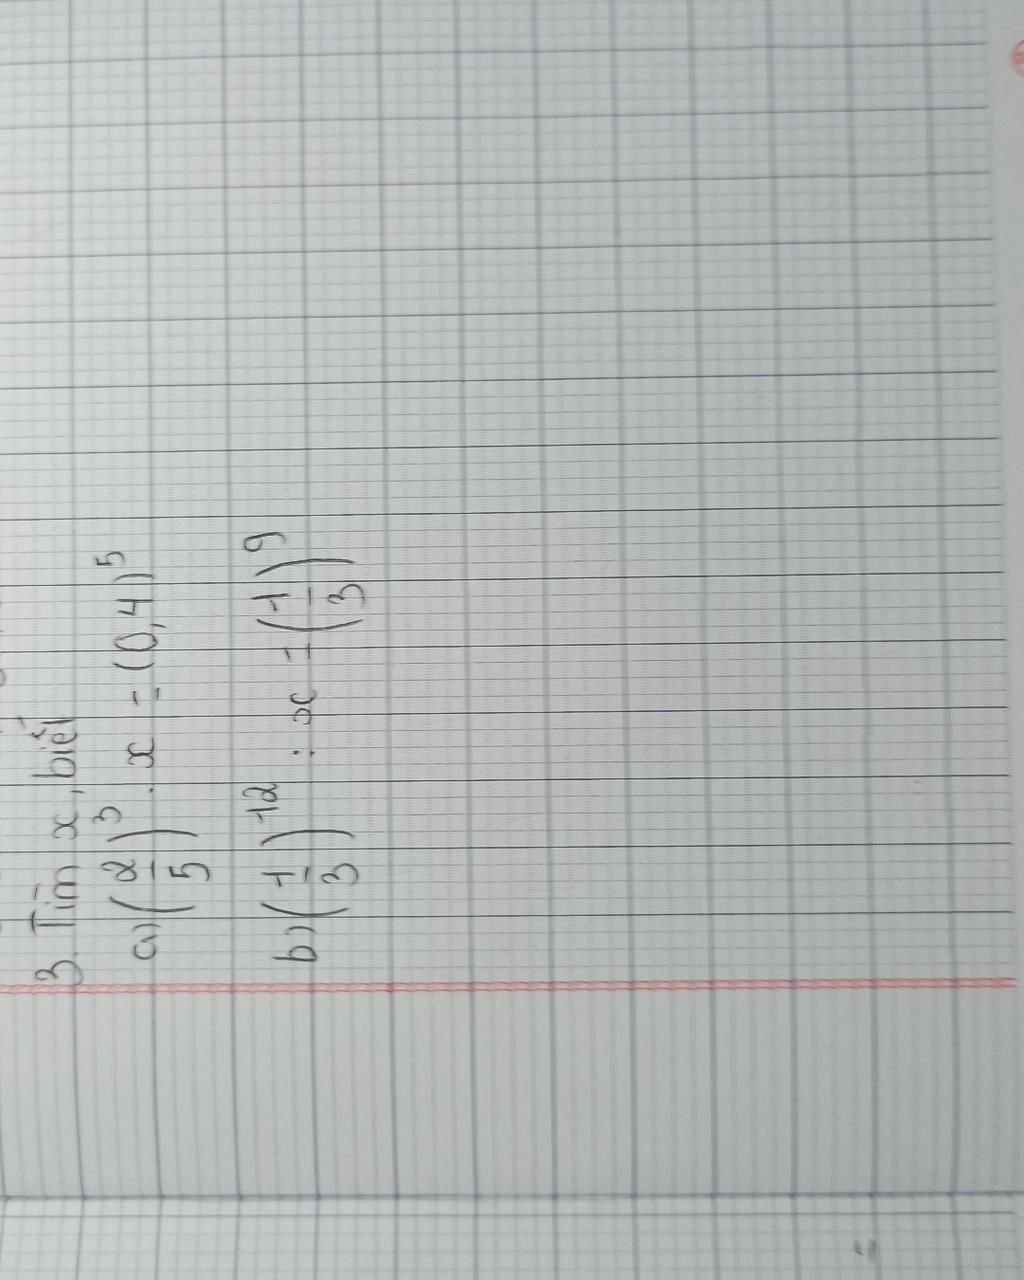 3. Tìm x, biết
a) (2/5)³ . x = (0,4)⁵
b) (1/3)¹² : x = (1/3)⁹